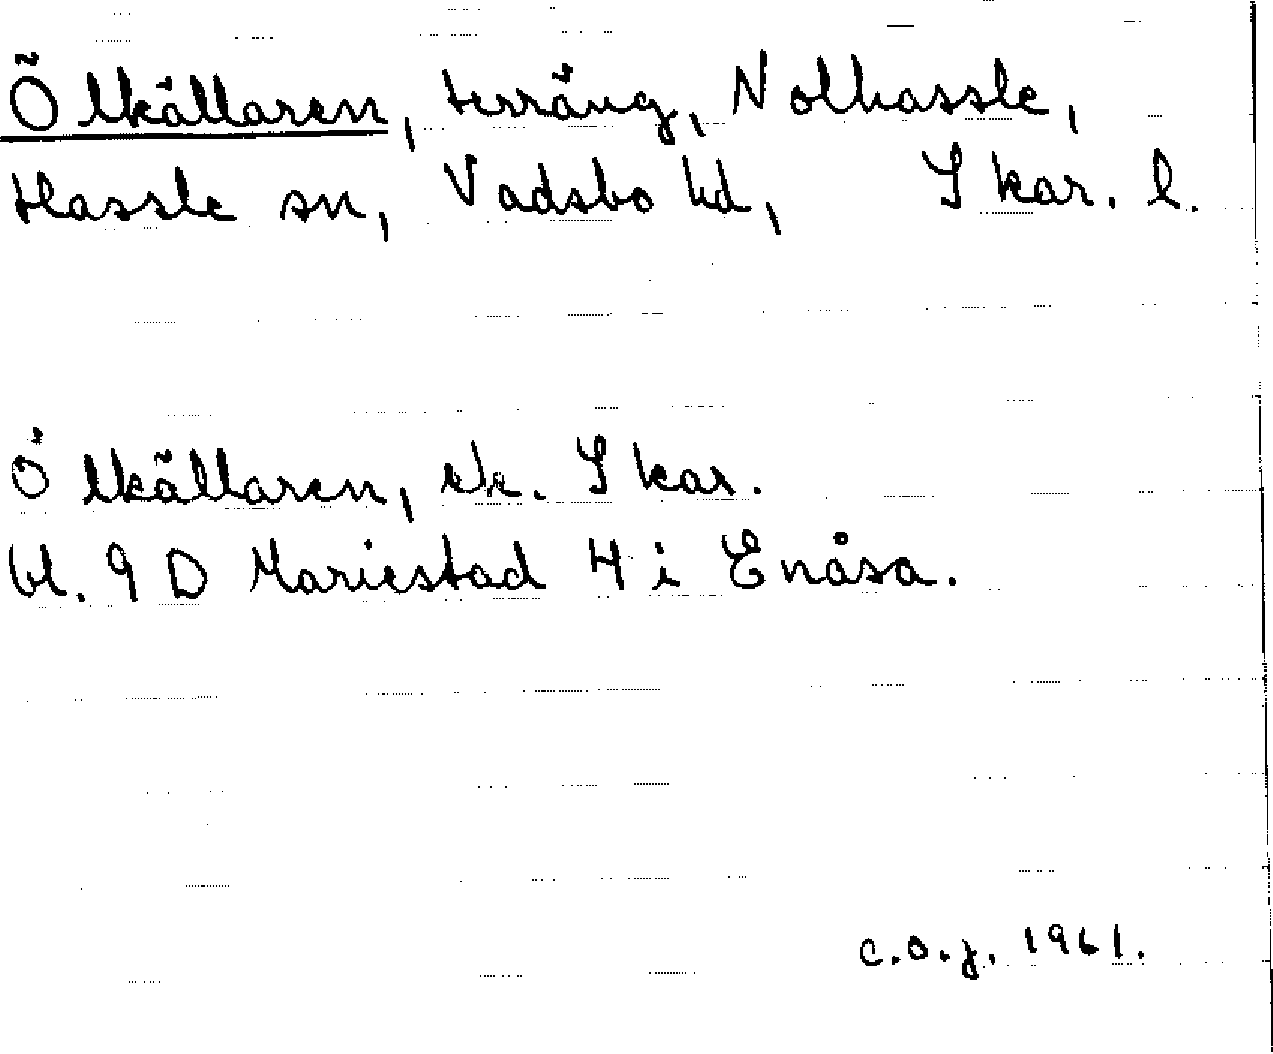 Ölkällaren, terräng, Nolhassle,
Hassle sn, Vadsbo hd, Skar. l.
Ölkällaren, ek. Skar.
bl. 9 D Mariestad 4 i Enåsa.
C.O.J. 1961.